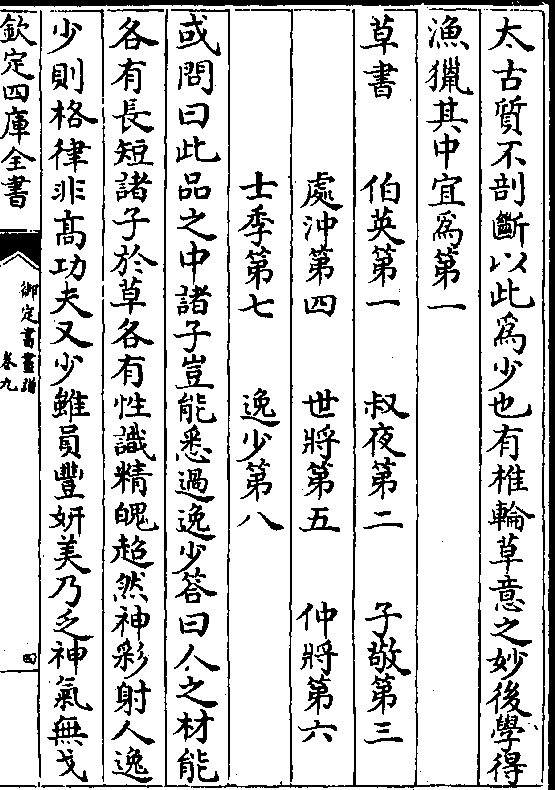 太古質不剖斷以此為少也有椎輪草意之妙後學得
漁獵其中宜為第一
草書　伯英第一　叔夜第二　子敬第三
處沖第四　世將第五　仲將第六
士季第七　逸少第八
或問曰此品之中諸子豈能悉過逸少答曰人之材能
各有長短諸子於草各有性識精魄超然神彩射人逸
少則格律非髙功夫又少雖員豐妍美乃乏神氣無戈
欽定四庫全書
御定書畫譜
卷九
四